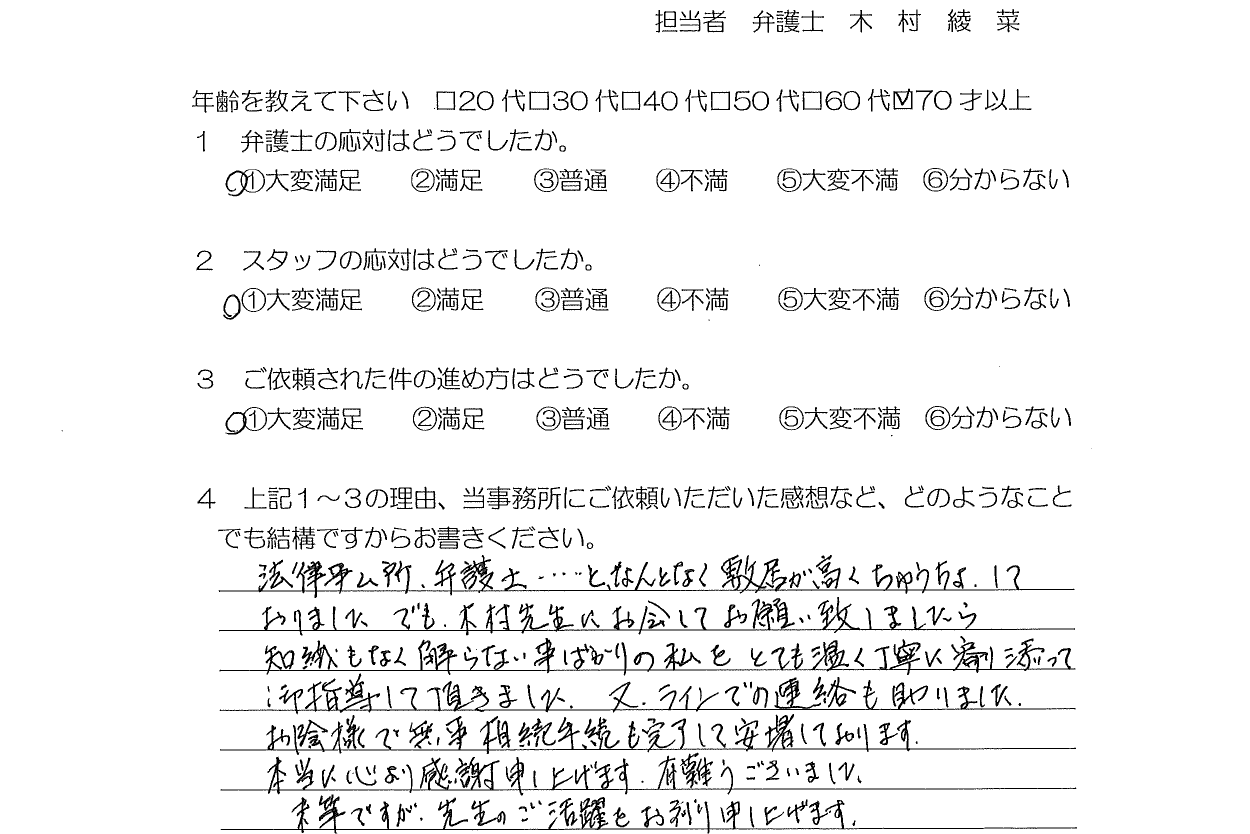 担当者　弁護士　木　村　綾　菜
年齢を教えて下さい　□20代□30代□40代□50代□60代☑70才以上
１　弁護士の応対はどうでしたか。
①大変満足　②満足　③普通　④不満　⑤大変不満　⑥分からない
２　スタッフの応対はどうでしたか。
①大変満足　②満足　③普通　④不満　⑤大変不満　⑥分からない
３　ご依頼された件の進め方はどうでしたか。
①大変満足　②満足　③普通　④不満　⑤大変不満　⑥分からない
４　上記１～３の理由、当事務所にご依頼いただいた感想など、どのようなこと
でも結構ですからお書きください。
法律事ム所、弁護士……と、なんとなく敷居が高くちゅうちょして
おりました。でも、木村先生にお会してお願い致しましたら
知識もなく解らない事ばかりの私をとても温く丁寧に寄り添って
御指導して頂きました。又、ラインでの連絡も助りました。
お陰様で無事相続手続も完了して安堵しております。
本当に心より感謝申し上げます。有難うございました。
末筆ですが、先生のご活躍をお祈り申し上げます。